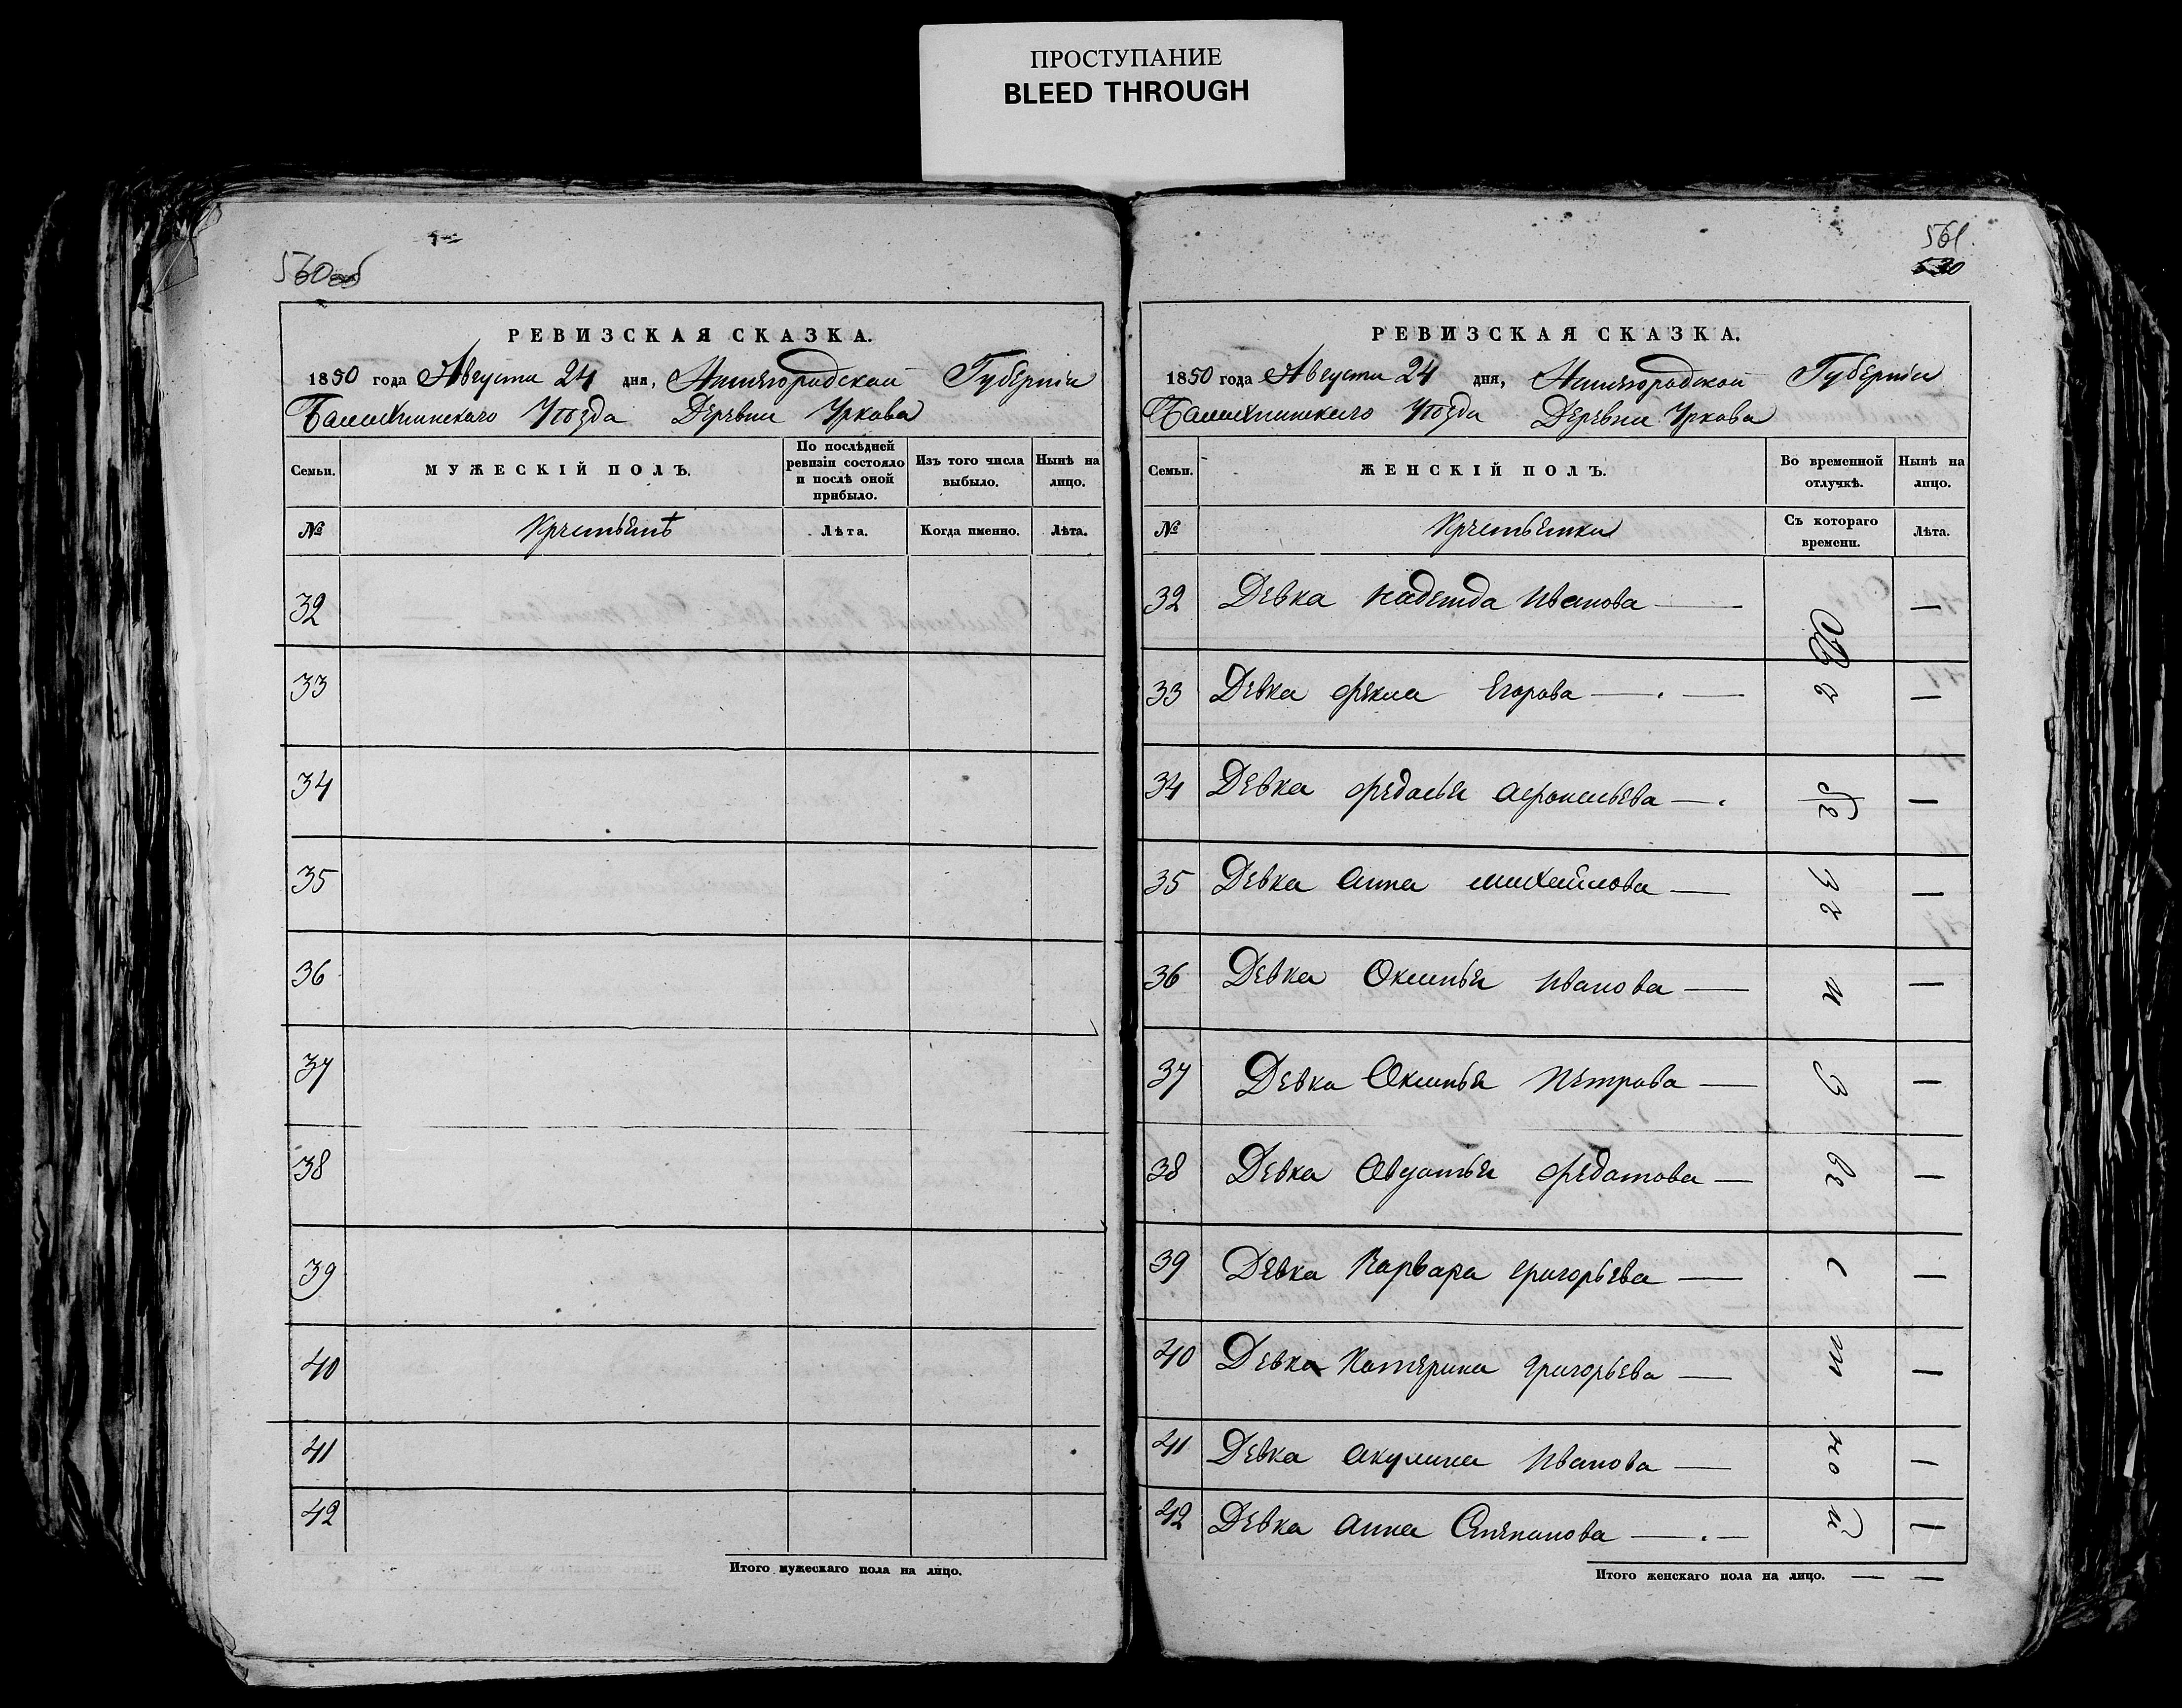 ПРОСТУПАНИЕ
BLEED THROUGH
560об
РЕВИЗСКАЯ СКАЗКА.
1850 года Августа 24 дня, Нижегородской Губерніи
Балахнинскаго Уѣзда Деревни Уркова
Семьи.
МУЖЕСКІЙ ПОЛЪ.
По послѣдней ревизіи состояло и послѣ оной прибыло.
Изъ того числа выбыло.
Нынѣ на лицо.
№
Крестьянѣ
Лѣта.
Когда именно.
Лѣта.
32
33
34
35
36
37
38
39
40
41
42
Итого мужескаго пола на лицо.
561.
РЕВИЗСКАЯ СКАЗКА.
1850 года Августа 24 дня, Нижегородской Губерніи
Балахнинскаго Уѣзда Деревни Уркова
Семьи.
ЖЕНСКІЙ ПОЛЪ.
Во временной отлучкѣ.
Нынѣ на лицо.
№
Крестьянки
Съ котораго времени.
Лѣта.
32 Девка Надежда Иванова — —
33 Девка Фекла Егорова — . — —
34 Девка Федосья Афонасьева — . —
35 Девка Анна Михайлова — —
36 Девка Оксинья Иванова — —
37 Девка Оксинья Петрова — —
38 Девка Овдотья Федотова — —
39 Девка Варвара Григорьева — —
40 Девка Катерина Григорьева — —
41 Девка Акулина Иванова — —
42 Девка Анна Степанова — . — —
Итого женскаго пола на лицо. — —